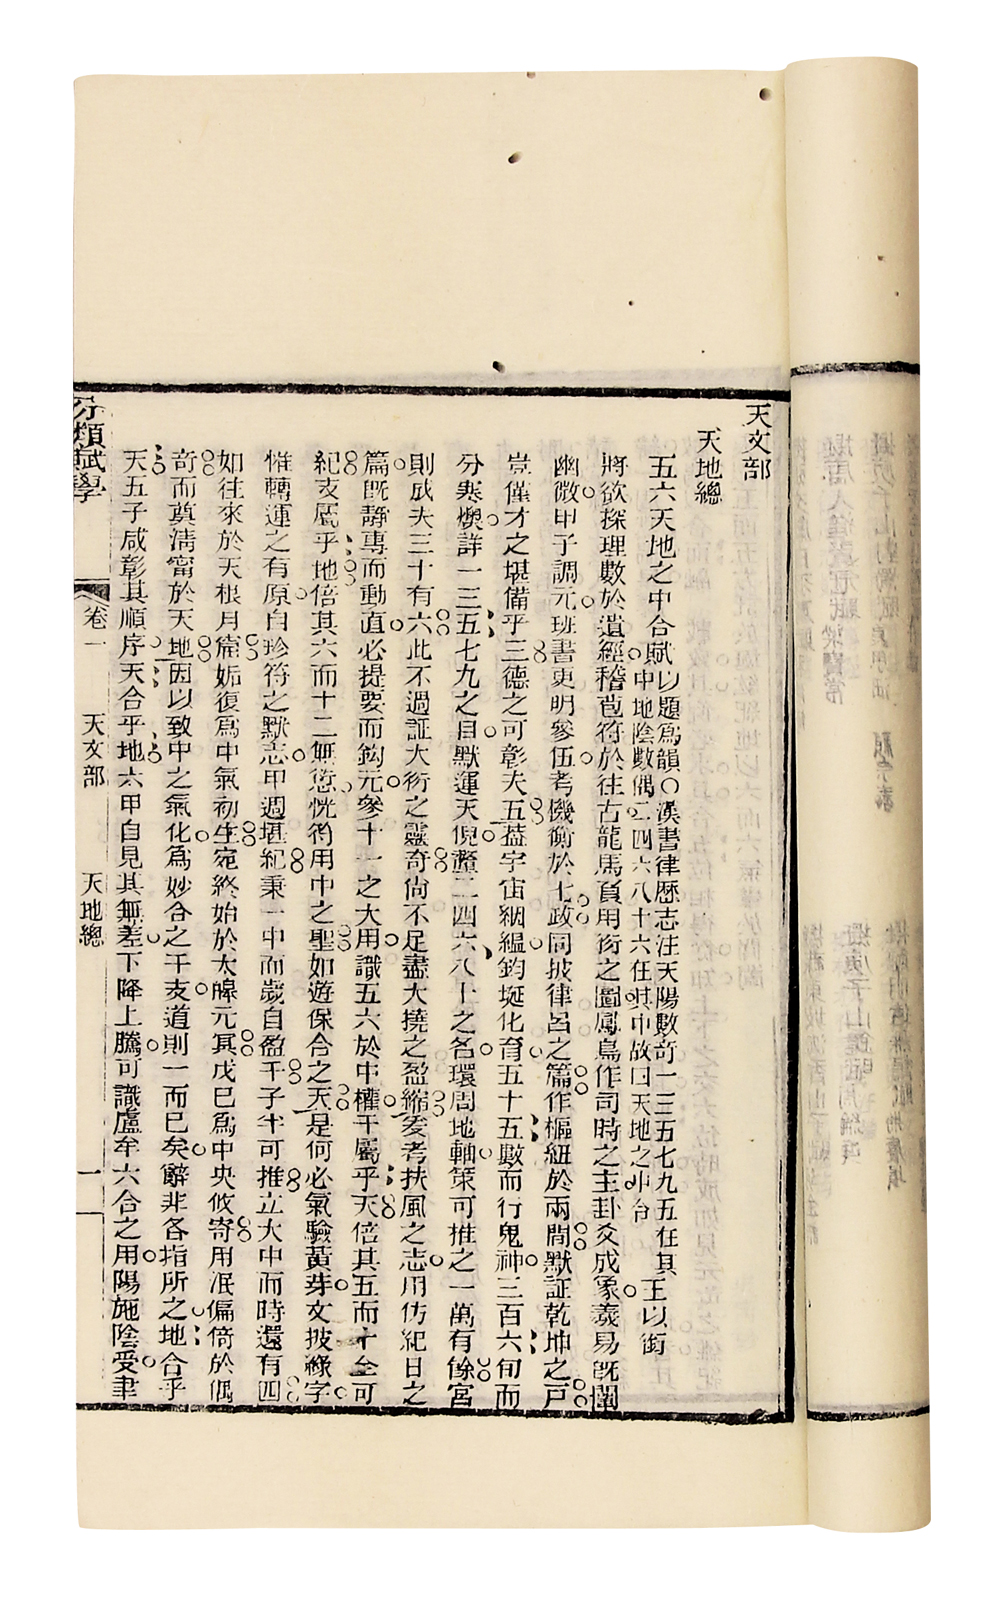 天文部
天地總
五六天地之中合賦以題爲韻○漢書律歷志注天陽數奇一三五七九五在其
中地陰數偶二四六八十六在其中故曰天地之中合
王以銜
將欲探理數於遺經稽豈符於往古龍馬負用衍之圖鳳鳥作司時之主卦爻成象羲易旣闡
幽微甲子調元班書更明參伍考機衡於七政同披律呂之篇作樞紐於兩間默証乾坤之戸
豈僅才之堪備乎三德之可彰夫五葢宇宙絪縕鈞埏化育五十五數而行鬼神三百六旬而
分寒燠詳一三五七九之目默運天倪釐二四六八十之名環周地軸策可推之一萬有餘宮
則成夫三十有六此不過証大衍之靈奇尙不足盡大撓之盈縮爰考扶風之志用仿紀日之
篇旣靜專而動直必提要而鈎元參十一之大用識五六於中權干屬乎天倍其五而十全可
紀支屬乎地倍其六而十二無愆恍符用中之聖如遊保合之天是何必氣驗黃芽文披綠字
惟轉運之有原自珍符之默志甲週堪紀秉一中而歲自盈干子半可推立大中而時還有四
如往來於天根月窟姤復爲中氣初生宛終始於太皥元冥戊己爲中央攸寄用泯偏倚於偶
奇而奠淸甯於天地因以致中之氣化爲妙合之干支道則一而已矣辭非各指所之地合乎
天五子咸彰其順序天合乎地六甲自見其無差下降上騰可識盧牟六合之用陽施陰受聿
分類賦學
卷一
天文部
天地總
一